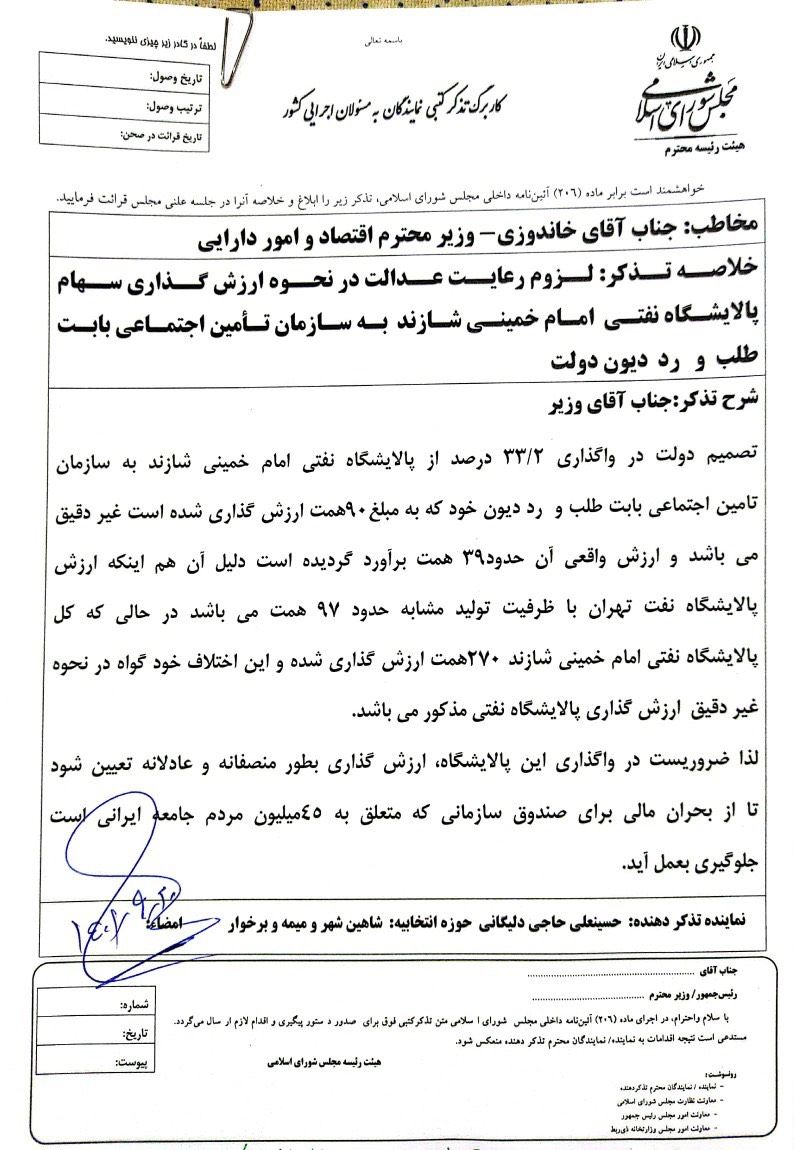 باسمه تعالی
جمهوری اسلامی ایران
مجلس شورای اسلامی
هیئت رئیسه محترم
کاربرگ تذکر کتبی نمایندگان به مسئولان اجرایی کشور
لطفاً در کادر زیر چیزی ننویسید.
تاریخ وصول:
ترتیب وصول:
تاریخ قرائت در صحن:
خواهشمند است برابر ماده (۲۰۶) آئین‌نامه داخلی مجلس شورای اسلامی، تذکر زیر را ابلاغ و خلاصه آنرا در جلسه علنی مجلس قرائت فرمایید.
مخاطب: جناب آقای خاندوزی– وزیر محترم اقتصاد و امور دارایی
خلاصه تذکر: لزوم رعایت عدالت در نحوه ارزش گذاری سهام
پالایشگاه نفتی امام خمینی شازند به سازمان تأمین اجتماعی بابت
طلب و رد دیون دولت
شرح تذکر:جناب آقای وزیر
تصمیم دولت در واگذاری ۳۳/۲ درصد از پالایشگاه نفتی امام خمینی شازند به سازمان
تامین اجتماعی بابت طلب و رد دیون خود که به مبلغ۹۰همت ارزش گذاری شده است غیر دقیق
می باشد و ارزش واقعی آن حدود۳۹ همت برآورد گردیده است دلیل آن هم اینکه ارزش
پالایشگاه نفت تهران با ظرفیت تولید مشابه حدود ۹۷ همت می باشد در حالی که کل
پالایشگاه نفتی امام خمینی شازند ۲۷۰همت ارزش گذاری شده و این اختلاف خود گواه در نحوه
غیر دقیق ارزش گذاری پالایشگاه نفتی مذکور می باشد.
لذا ضروریست در واگذاری این پالایشگاه، ارزش گذاری بطور منصفانه و عادلانه تعیین شود
تا از بحران مالی برای صندوق سازمانی که متعلق به ٤٥میلیون مردم جامعه ایرانی است
جلوگیری بعمل آید.
نماینده تذکر دهنده: حسینعلی حاجی دلیگانی حوزه انتخابیه: شاهین شهر و میمه و برخوار امضاء:
جناب آقای ........................
رئیس‌جمهور/ وزیر محترم ........................
با سلام واحترام، در اجرای ماده (۲۰۶) آئین‌نامه داخلی مجلس شورای ا سلامی متن تذکرکتبی فوق برای صدور د ستور پیگیری و اقدام لازم ار سال می‌گردد.
مستدعی است نتیجه اقدامات به نماینده/ نمایندگان محترم تذکر دهنده منعکس شود.
هیئت رئیسه مجلس شورای اسلامی
شماره:
تاریخ:
پیوست:
رونوشت:
- نماینده / نمایندگان محترم تذکردهنده
- معاونت نظارت مجلس شورای اسلامی
- معاونت امور مجلس رئیس جمهور
- معاونت امور مجلس وزارتخانه ذی‌ربط